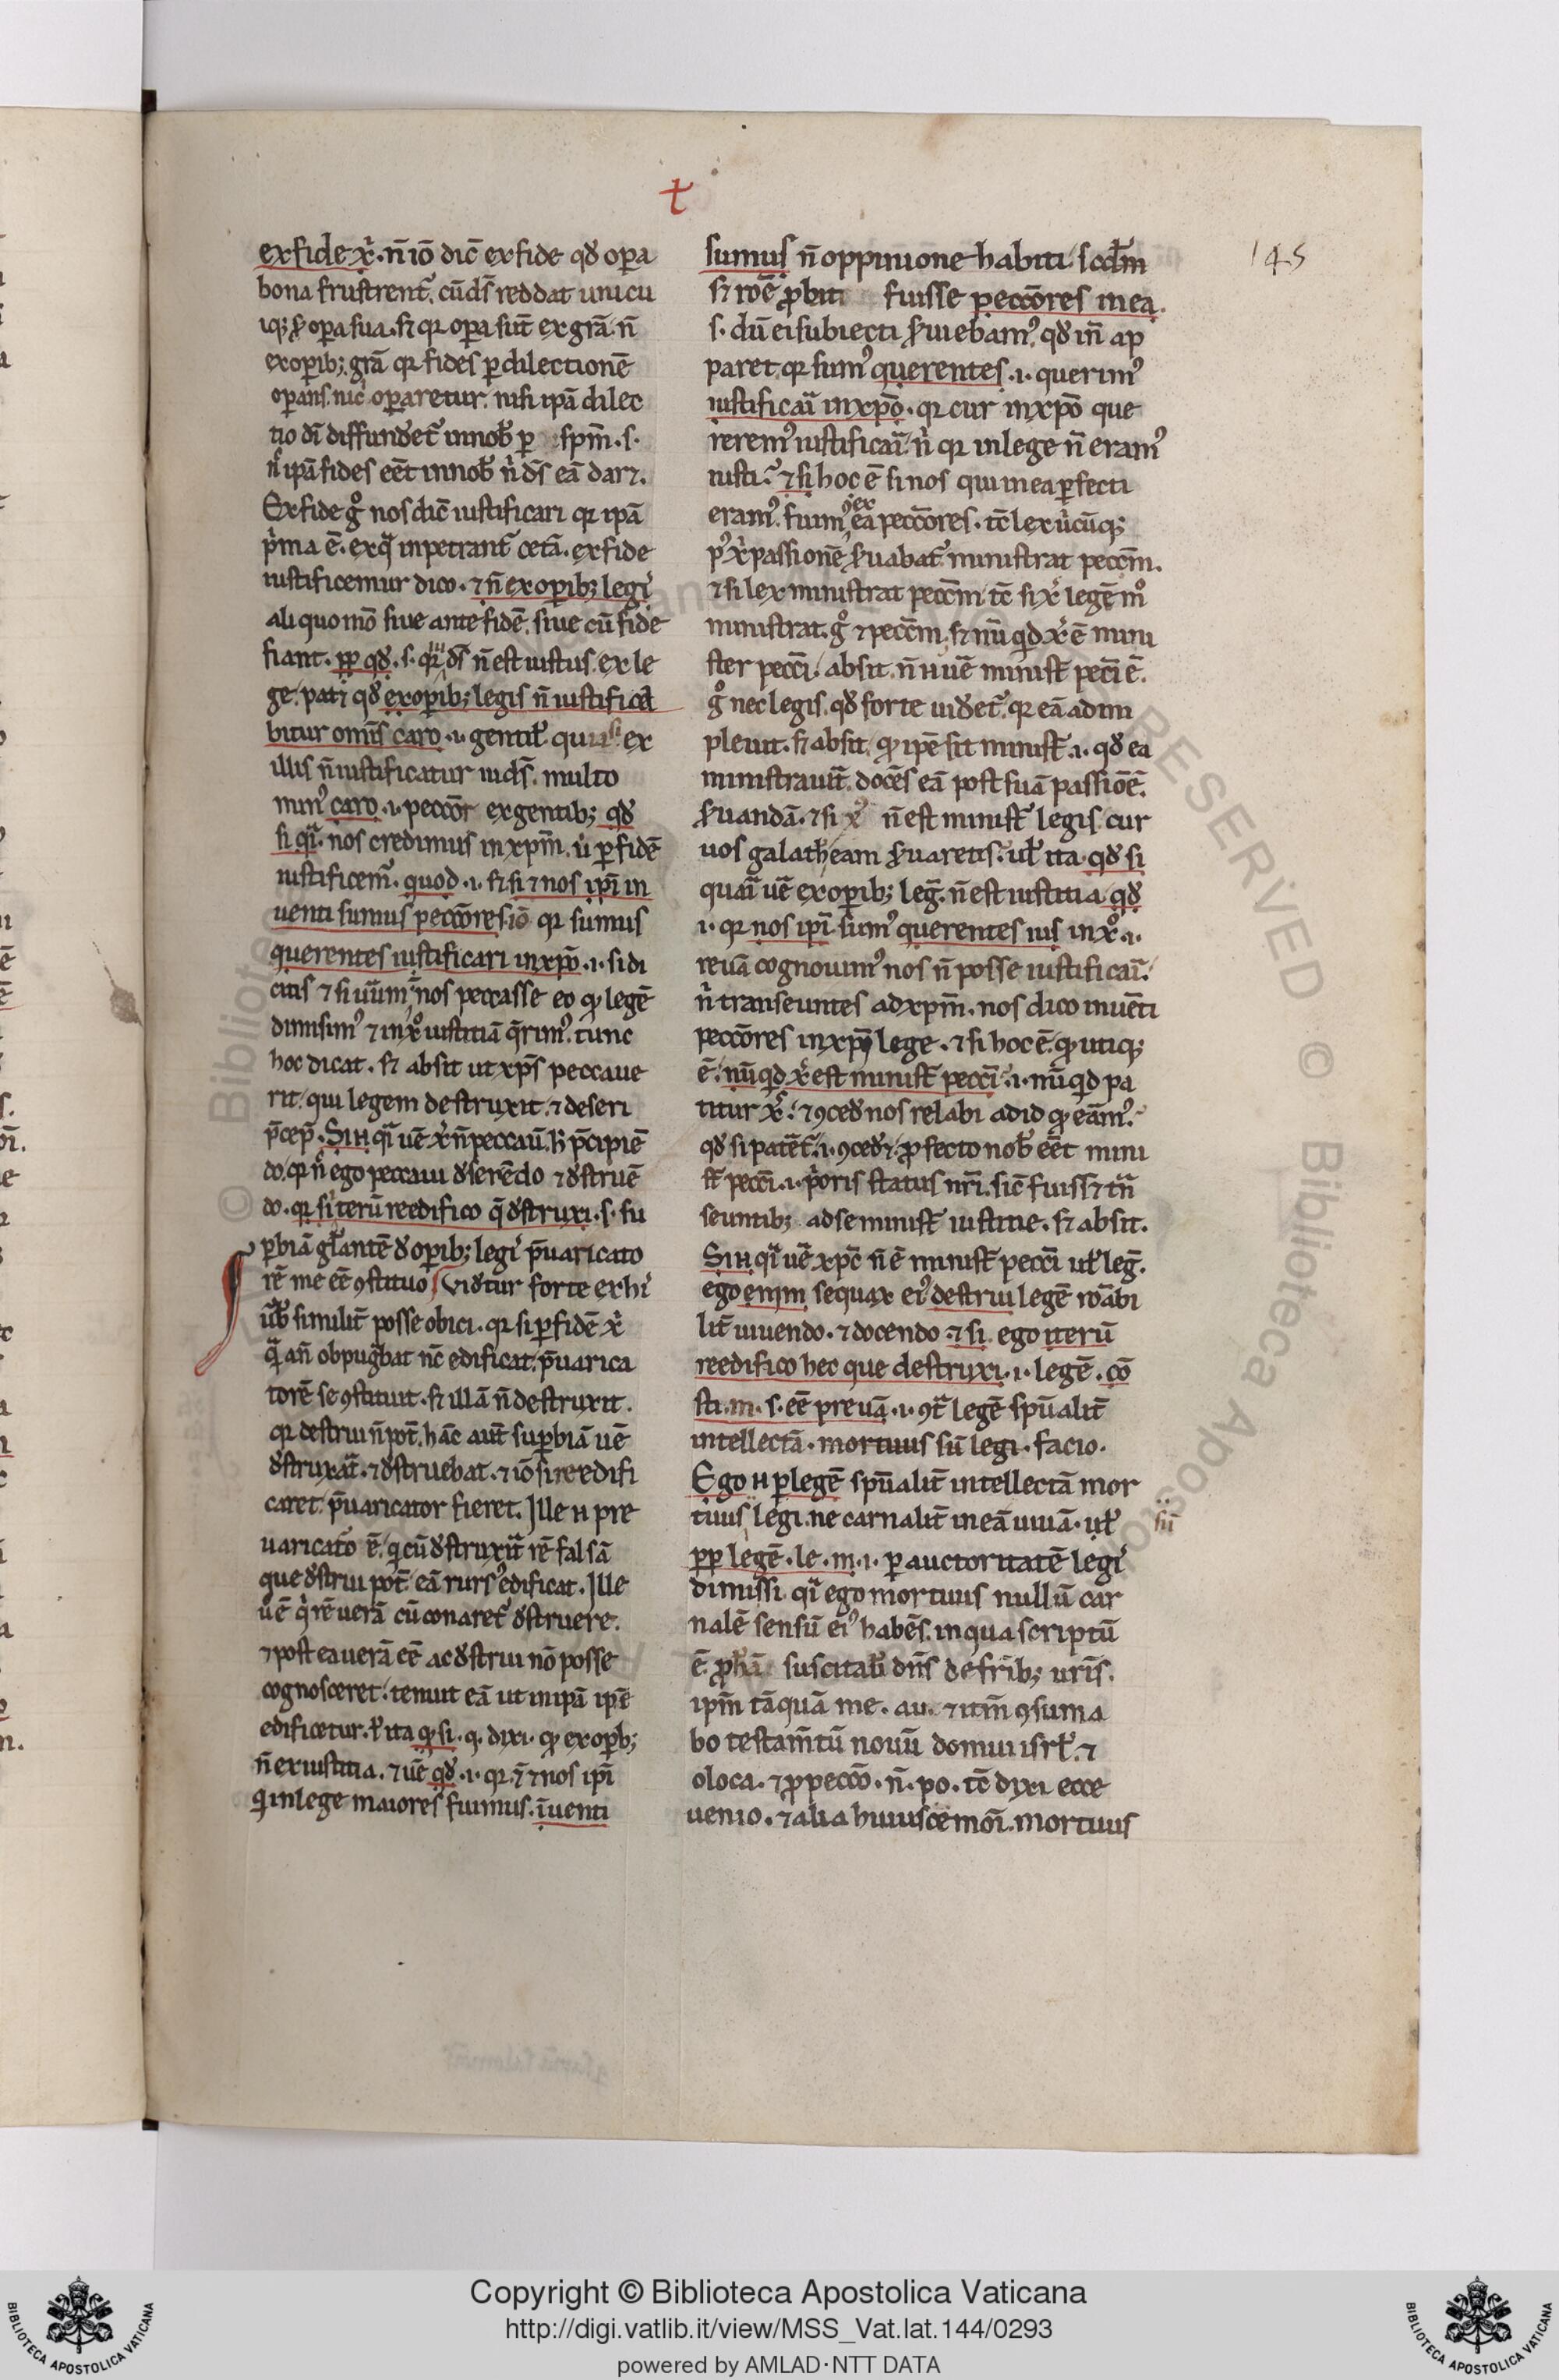 t
145
ex fide xp̄i. n̄ iō dic̄ ex fide qđ oꝑa
bona frustrent᷑. cū ds̄ reddat unicu
iqꝫ ẜ oꝑa sua. sꝫ qꝛ oꝑa sūt ex grā. n̄
ex oꝑibꝫ grā qꝛ fides ꝑ dilectionē
oꝑans. nc̄ oꝑaretur. nisi ip̄a dilec
tio dī diffunđet᷑ in nob̄ ꝑ sp̄m. s.
n̄ ip̄a fides eēt in nob̄ ni ds̄ eā daret.
Ex fide gͦ nos dic̄ iustificari qꝛ ip̄a
p̄ma ē. ex qᵃ inpetrant᷑ cet̄a. ex fide
iustificemur dico. ⁊ n̄ ex oꝑibꝫ legi᷒
aliquo mō siue ante fidē. siue cū fide
fiant. ꝓp qđ. s. qꝛ ds̄ n̄ est iustus ex le
ge. patꝫ qđ ex oꝑibꝫ legis n̄ iustifica
bitur om̄is caro .i. gentił. qui si ex
illis n̄ iustificatur iuds̄. multo
min᷒ caro .i. peccōr ex gentibꝫ qđ
si qᵃ. nos credimus in xp̄m. ut ꝑ fidē
iustificem᷒. quod .i. sꝫ si ⁊ nos ip̄i in
uenti sumus peccōres iō qꝛ sumus
querentes iustificari in xp̄o .i. si di
citis ⁊ si uūm nos peccasse eo qꝙ legē
dimisim᷒ ⁊ in xͦ iustitiā q̄rim᷒. tunc
hoc dicat. sꝫ absit ut xp̄s peccaue
rit. qui legem destruxit. ⁊ deseri
p̄cep̄. Si n̄ qᵃ uē xp̄s n̄ peccau̅. h̄ p̄cipiē
do. qꝛ n̄ ego peccaui đserēdo ⁊ đstruē
do. qꝛ si iterū reedifico q̄ đstruxi. s. su
ꝑbiā gl̄antē đ oꝑibꝫ legi᷒ p̄uaricato
rē me eē ꝯstituo Vidꝫtur forte ex hi᷒
ūb̄ similit̄ posse obici. qꝛ si ꝑ fidē xi
q̄ an̄ obpugbat nc̄ edificat. p̄uarica
torē se ꝯstituit. sꝫ illā n̄ destruxit.
qꝛ destrui n̄ pot̄. hāc aut̄ suꝑbiā uē
đstruxat̄. ⁊ đstruebat. ⁊ iō si reedifi
caret. p̄uaricator fieret. Ille n̄ pre
uaricatō ē. q cū đstruxit̄ rē falsā
que đstrui pot̄ eā rurs᷒ edificat. Ille
uͦ ē qi rē uerā cū conaret᷑ đstruere.
⁊ post ea uerā eē ac đstrui nō posse
cognosceret. tenuit eā ut in ip̄a ip̄e
edificetur. ł ita qꝙ si. q. dixi. qꝙ ex oꝑbꝫ
n̄ ex iustitia. ⁊ uē qđ .i. qꝛ. ⁊ nos ip̄i
q in lege maiores fuimus. īuenti
sumus n̄ oppinione habiti. scđm
sꝫ roē ꝓbati fuisse peccōres in ea.
s. dū ei subiecti ẜuiebam᷒. qđ in̄ ap
paret. qꝛ sum᷒ querentes .i. querim᷒
iustificai in xp̄o. qꝛ cur in xp̄o que
rerem᷒ iustificai. ni qꝛ in lege n̄ eram᷒
iusti. ⁊ si hoc ē si nos qui in ea ꝑfecti
eram᷒. fuim᷒ ex ea peccōres. tc̄ lex ucūqꝫ
p᷒ xi passionē ẜuabat᷑ ministrat peccm̄.
⁊ si lex ministrat peccm̄ tc̄ si xp̄s legē mͦ
ministrat. gͦ ⁊ peccm̄. sꝫ nū qd xp̄s ē mini
ster pecci. absit. n̄ uē minist̄ peci ē.
gͦ nec legis. qđ forte uiđet᷑. qꝛ eā adim
pleuit. sꝫ absit. qꝙ ip̄e sit minist̄ .i. qđ ea
ministrauit̄ docēs eā post suā passiōē.
ẜuandā. ⁊ si x᷒ n̄ est minist̄ legis. cur
uos galath̄ eam ẜuaretis. uł ita qđ si
quai uē ex oꝑibꝫ leḡ. n̄ est iustitia qđ
.i. qꝛ nos ip̄i sum᷒ querentes ius in xͦ .i.
re uā cognouim᷒ nos n̄ posse iustificai.
ni transeuntes ad xp̄m. nos dico inuēti
peccōres in xp̄i lege. ⁊ si hoc ē. qꝙ utiqꝫ
ē. nū qd xp̄s est minist̄ pecci .i. nū qd pa
titur xp̄s. ⁊ ꝯceđ nos relabi ad id qꝙ eām᷒.
qđ si patēt᷑ .i. ꝯceđꝫ. ꝓfecto nob̄ eēt mini
st̄ pecci .i. p̄oris status nr̄i. sic̄ fuissꝫ tn̄
seuntibꝫ ad se minist̄ iustitie. sꝫ absit.
Si n̄ qᵃ uē xpc̄ n̄ ē minist̄ pecci uł leḡ.
ego enim sequax ei᷒ destrui legē roābi
lit̄ uiuendo. ⁊ docendo ⁊ si ego iterū
reedifico hec que destruxi .i. legē. cō
sti. m. s. eē preuā .i. ꝯᵗ legē spūalit̄
intellectā. mortuus sū legi. facio.
Ego n̄ ꝑ legē spūalit̄ intellectā mor
tuus legi. ne carnalit̄ in eā uiuā. uł
sū
ꝓp legē. le. m. .i. ꝑ auctoritatē legi᷒
dimissi. qᵃ ego mortuus nullū car
nalē sensū ei᷒ habēs. in qua scriptū
ē. ꝓph̄ā suscitab̄ dn̄s de frībꝫ uris̄.
ip̄m tāquā me. au. ⁊ itm̄ ꝯsuma
bo testam̄tū nouū domui isrł. ⁊
oloca. ⁊ ꝓ peccō. n̄. po. tc̄ dixi ecce
uenio. ⁊ alia huiuscemōi. mortuus
Copyright © Biblioteca Apostolica Vaticana
http://digi.vatlib.it/view/MSS_Vat.lat.144/0293
powered by AMLAD·NTT DATA
BIBLIOTECA APOSTOLICA VATICANA
BIBLIOTECA APOSTOLICA VATICANA